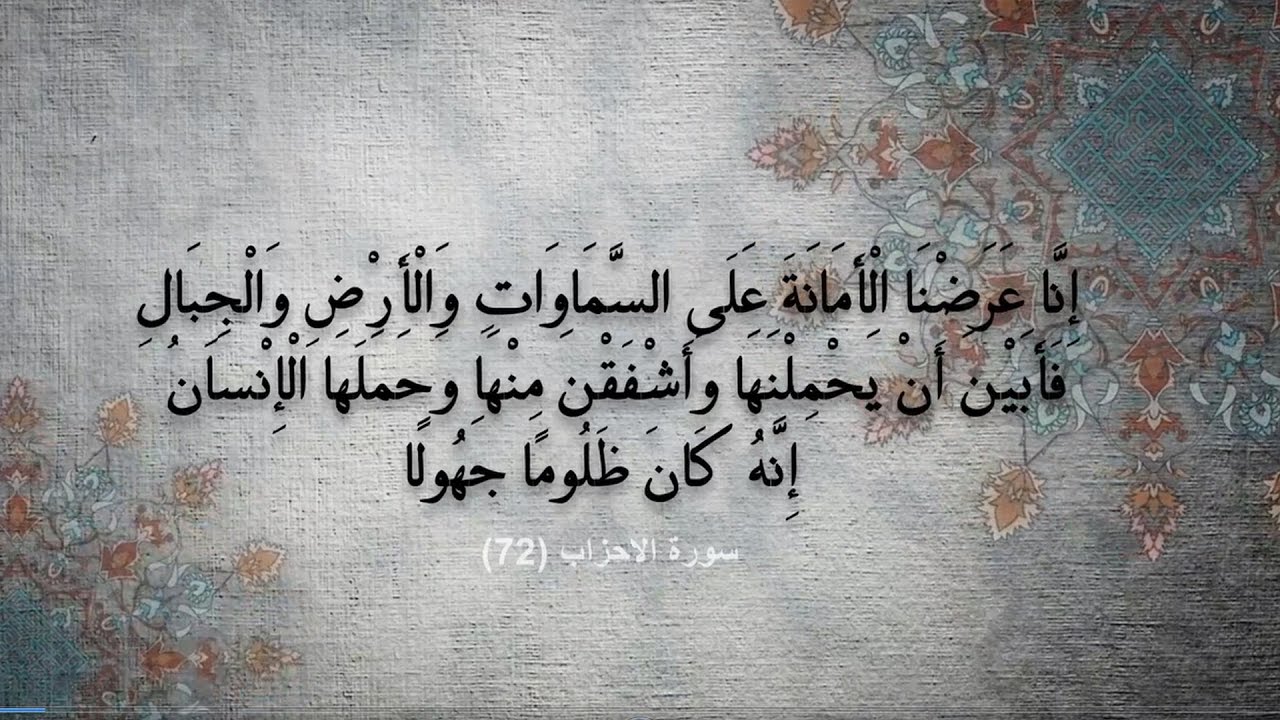 إِنَّا عَرَضْنَا الْأَمَانَةَ عَلَى السَّمَاوَاتِ وَالْأَرْضِ وَالْجِبَالِ
فَأَبَيْنَ أَنْ يَحْمِلْنَهَا وَأَشْفَقْنَ مِنْهَا وَحَمَلَهَا الْإِنْسَانُ
إِنَّهُ كَانَ ظَلُومًا جَهُولًا
سورة الاحزاب (72)